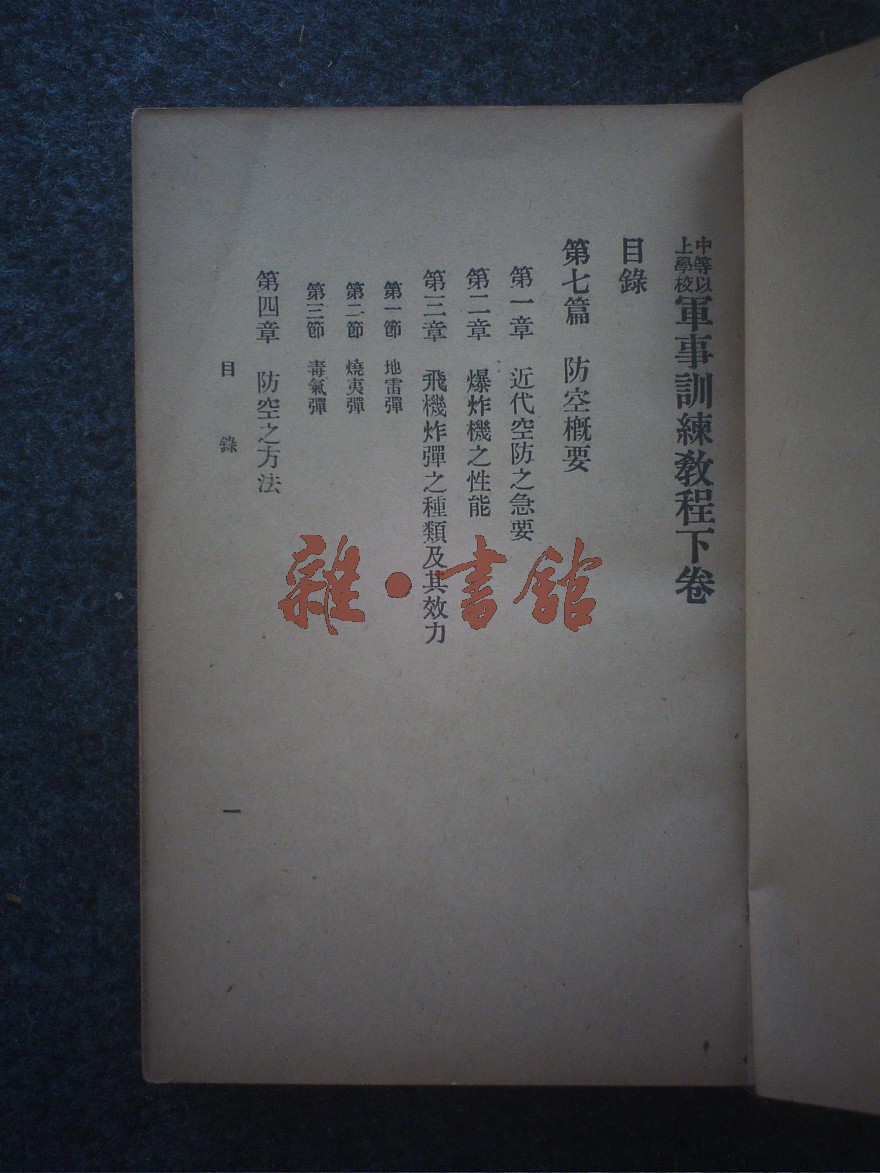 中等以上學校軍事訓練敎程下卷
目錄
第七篇 防空概要
第一章 近代空防之急要
第二章 爆炸機之性能
第三章 飛機炸彈之種類及其效力
第一節 地雷彈
第二節 燒夷彈
第三節 毒氣彈
第四章 防空之方法
目錄 一
雜·書館